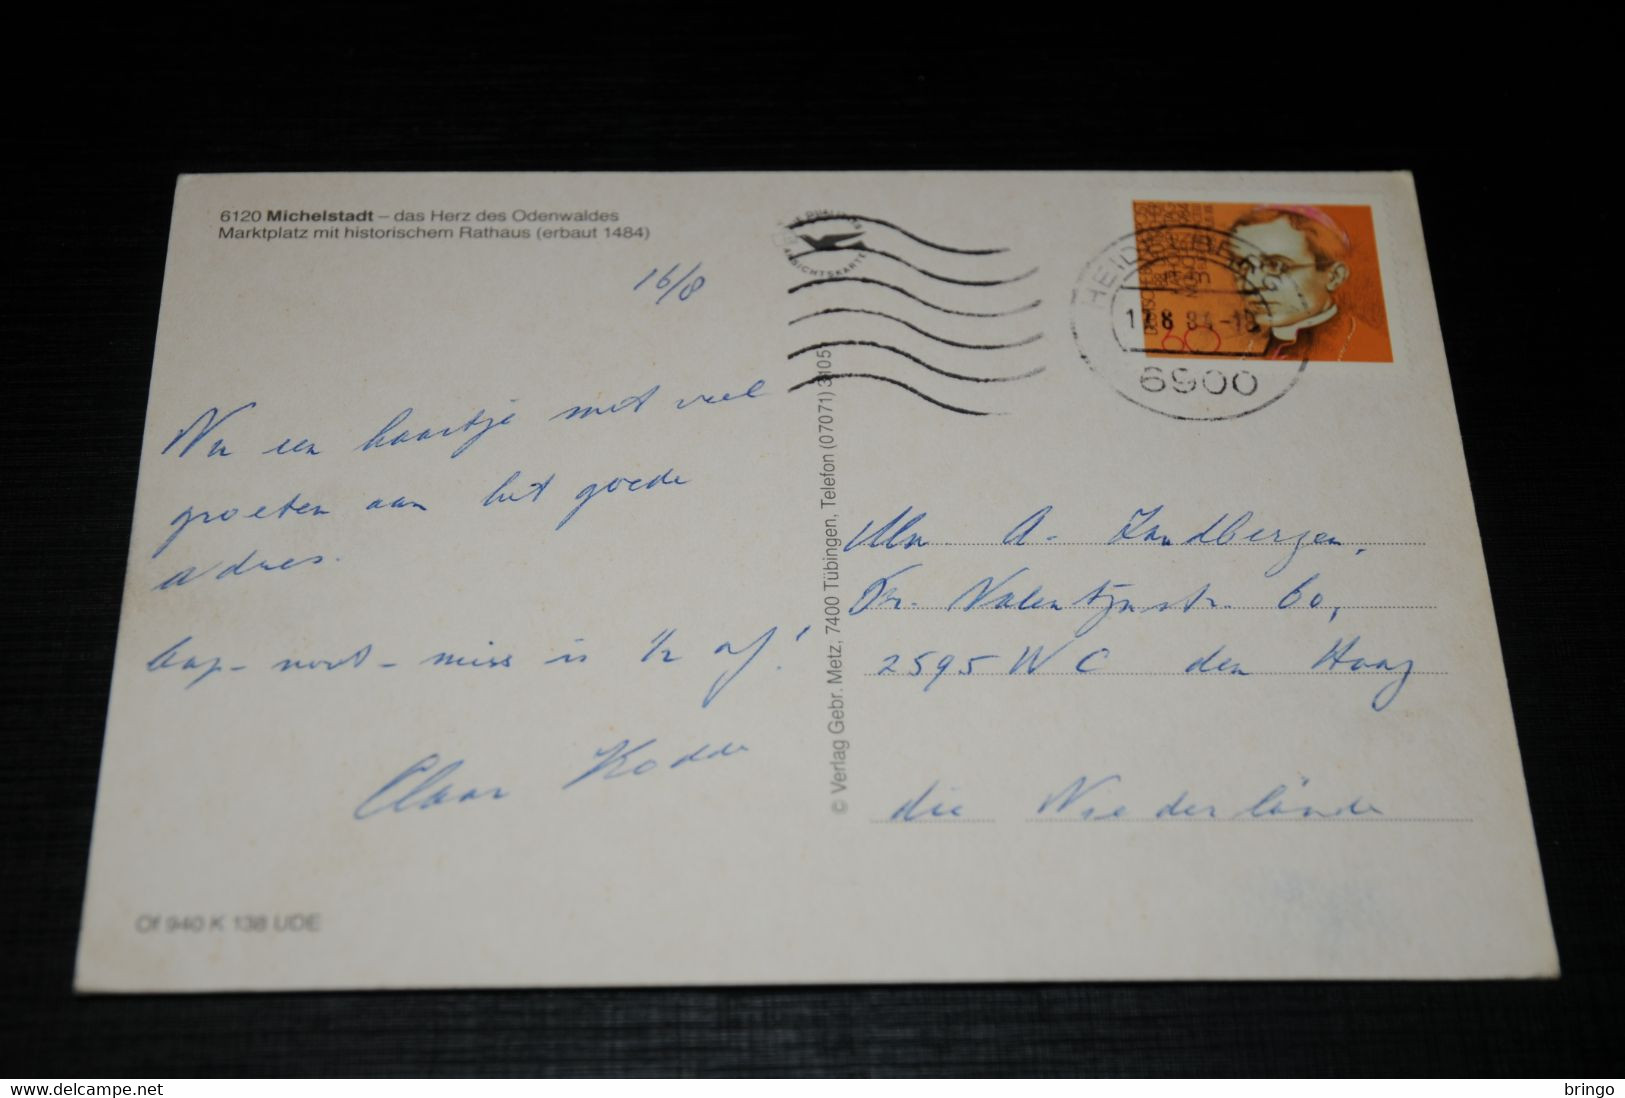 6120 Michelstadt – das Herz des Odenwaldes
Marktplatz mit historischem Rathaus (erbaut 1484)
16/8
Nu een kaartje met veel
groeten aan het goede
adres.
miss is 1/2 af!
Claar Kodde
Of 940 K 138 UDE
© Verlag Gebr. Metz, 7400 Tübingen, Telefon (07071) 3105
ANSICHTSKARTE
HEIDELBERG
17.8.84-18
6900
60
Mn. A. Zandbergen,
Dr. Valentijnstr. 60,
2595 WC den Haag
die Niederlände
delcampe.net
bringo